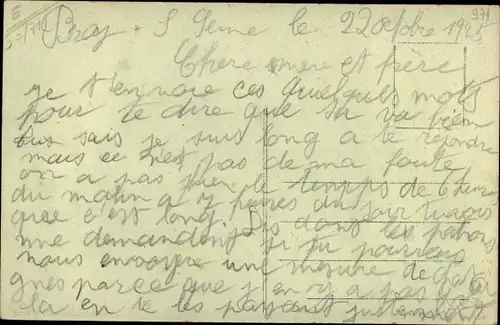 Bray - S Seine le 22 octobre 1925
Chere mere et frère
je t'envoie ces quelques mots
pour te dire que sa va bien
sais je suis long a te répondre
mais ce n'est pas de ma faute
on a pas bien le temps de
du matin a 7 heures du soir tu vois
que c'est long. dans les patrons
me demandent si tu pourrais
nous envoyer une mesure de
gnes parce que j'en y a pas
la en te les payant justement